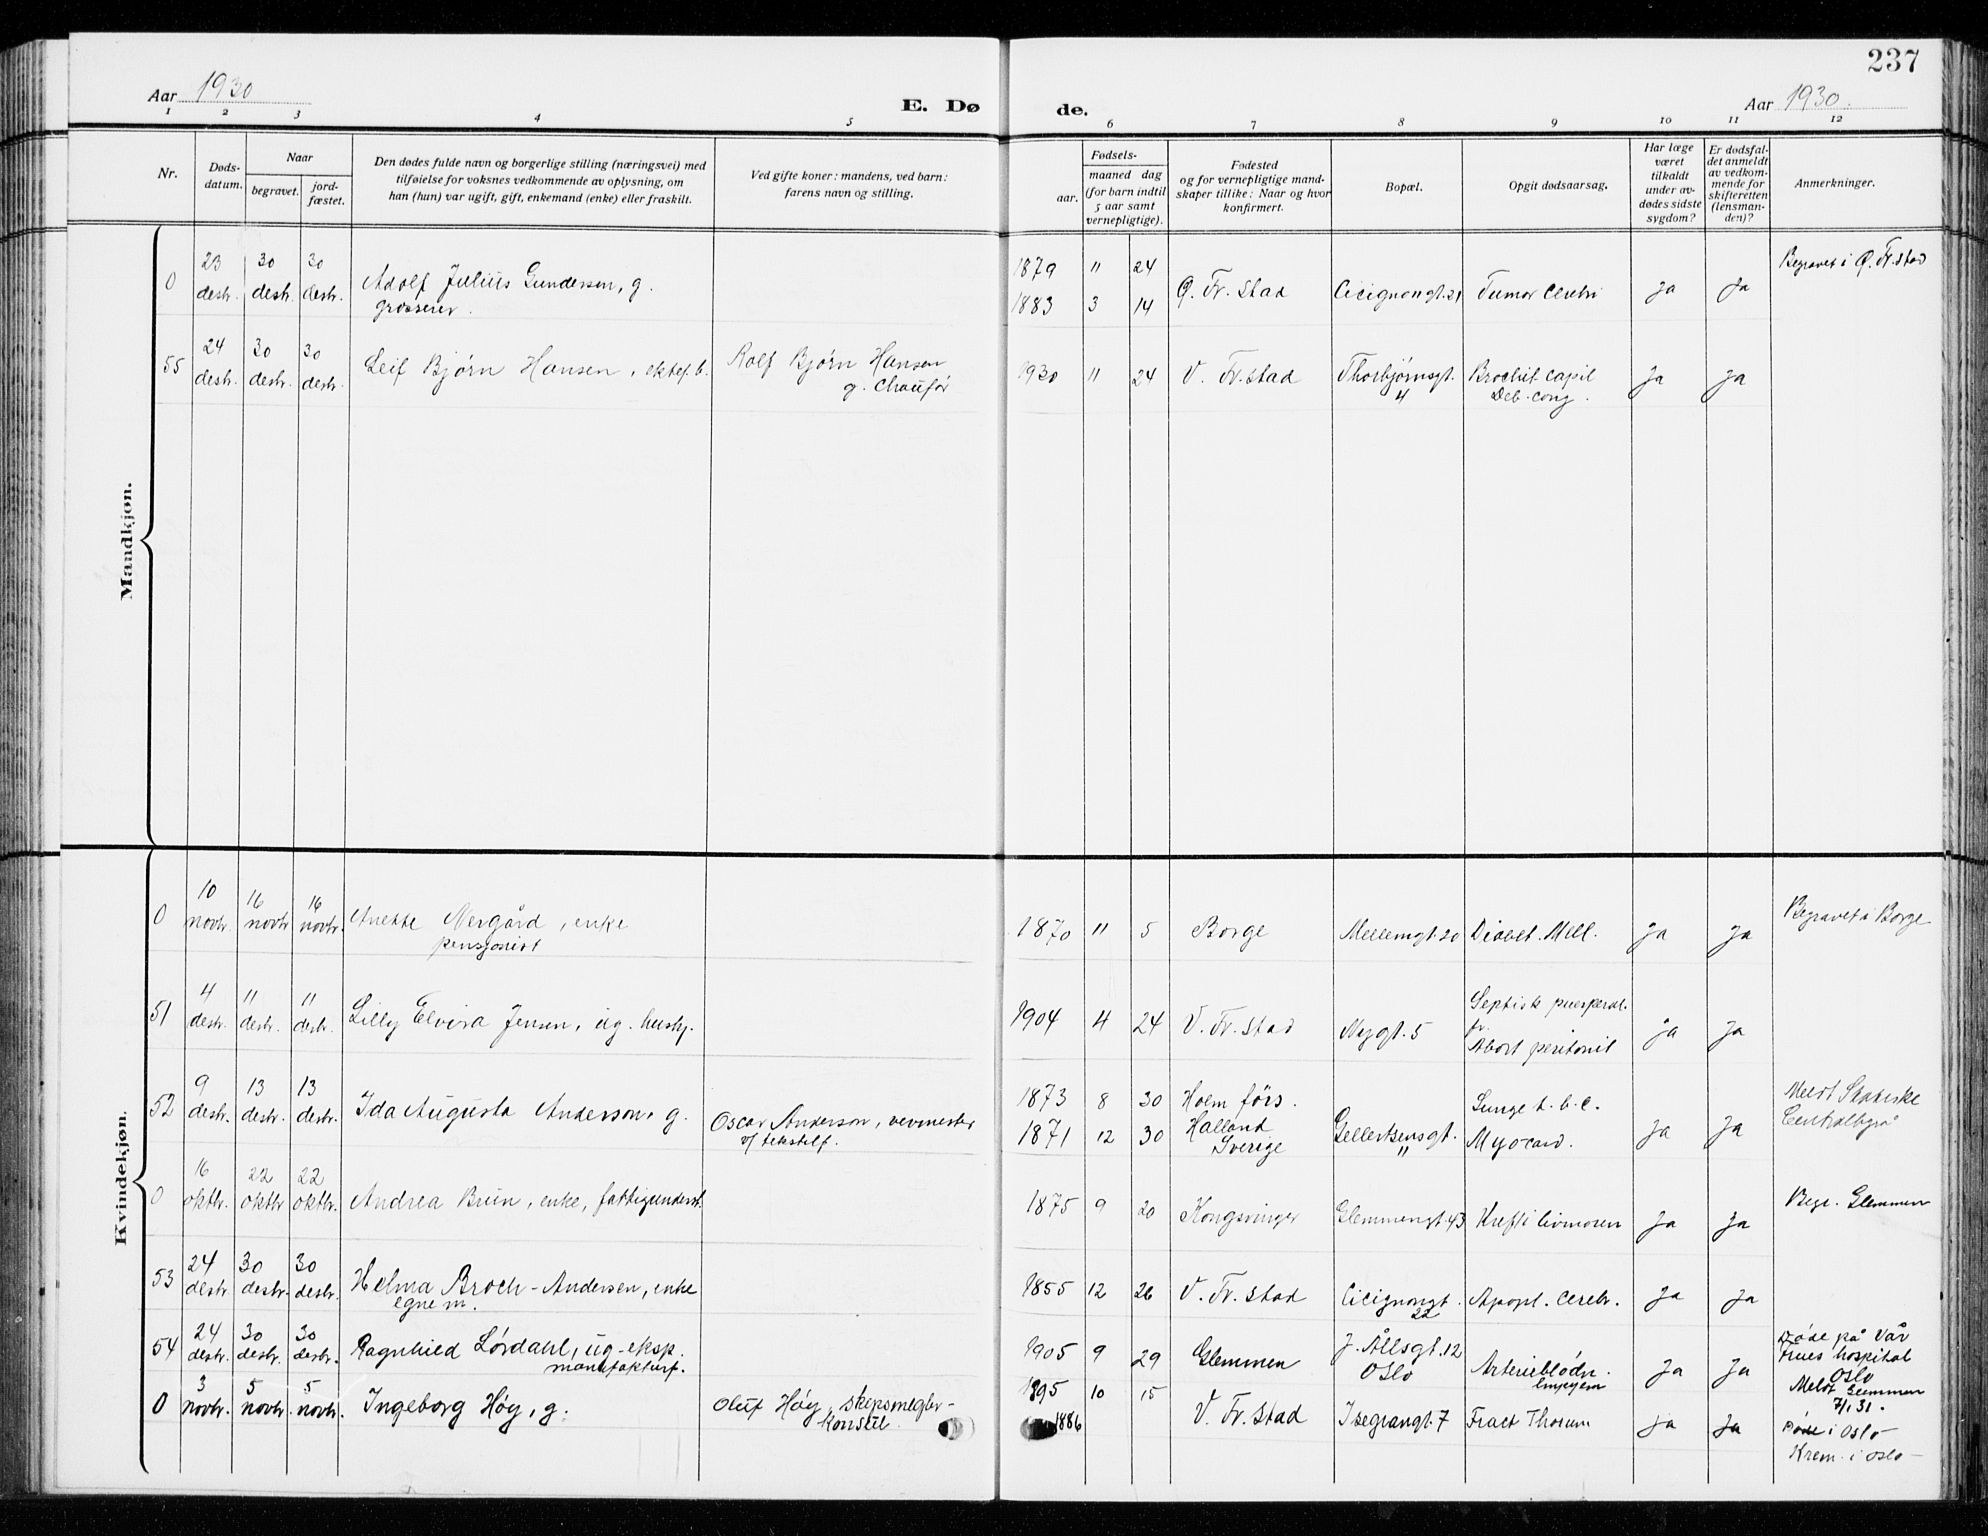 237
Aar 1930
E. Dø
de.
Aar 1930.
1 2 3 4 5 6 7 8 9 10 11 12
Nr.
Døds-
datum.
Naar
begravet.
jord-
fæstet.
Den dødes fulde navn og borgerlige stilling (næringsvei) med
tilføielse for voksnes vedkommende av oplysning, om
han (hun) var ugift, gift, enkemand (enke) eller fraskilt.
Ved gifte koner: mandens, ved barn:
farens navn og stilling.
Fødsels-
aar.
maaned dag
(for barn indtil
5 aar samt
vernepligtige).
Fødested
og for vernepligtige mand-
skaper tillike: Naar og hvor
konfirmert.
Bopæl.
Opgit dødsaarsag.
Har læge
været
tilkaldt
under av-
dødes sidste
sygdom?
Er dødsfal-
det anmeldt
av vedkom-
mende for
skifteretten
(lensman-
den)?
Anmerkninger.
Mandkjøn.
0 23 desbr. 30 desbr. 30 desbr. Adolf Julius Gundersen, g.
grosserer.
1879 11 24
1883 3 14
Q. Fr. Stad Cicignongt. 21 Tumor Cerebri Ja Ja Begravet i Q. Fr. stad
55 24 desbr. 30 desbr. 30 desbr. Leif Bjørn Hansen, ektef. b.
Rolf Bjørn Hansen
g. Chaufør
1930 11 24 V. Fr. stad Thorbjørnsgt.
4
Brochit capil
Deb. cong.
Ja Ja
Kvindekjøn.
0 10 novbr. 16 novbr 16 novbr. Anette Nergård, enke
pensjonist
1870 11 5 Borge Mellemgt. 20 Diabet. Mell. Ja Ja Begravet i Borge
51 4 desbr. 11 desbr. 11 desbr. Lilly Elvira Jensen, ug. hushj.
1904 4 24 V. Fr. Stad Nygt. 5 Septisk puerperal.
Abort peritonit
ja Ja
52 9 desbr. 13 desbr. 13 desbr. Ida Augusta Anderson, g.
Oscar Anderson, vevmester
v/ tekstilf.
1873 8 30
1871 12 30
Holm förs.
Halland
Sverige
Gellertsensgt.
11
Lunge t.b.c.
Myocard.
Ja Ja Meldt Statistiske
Centralbyrå
0 16 oktbr. 22 oktbr 22 oktbr. Andrea Brun, enke, fattigunderst.
1875 9 20 Kongsvinger Glemmengt. 43 Kreft i livmoren Ja Ja Begr. Glemmen
53 24 desbr 30 desbr. 30 desbr. Helma Broch-Andersen, enke
egne m.
1855 12 26 V. Fr. Stad Cicignongt.
22
Apopl. Cerebr. Ja Ja
54 24 desbr. 30 desbr. 30 desbr. Ragnhild Lørdahl, ug. eksp.
manufakturf.
1905 9 29 Glemmen J. Ållsgt. 12
Oslo
Arterieblødn.
Empyem
Ja Ja Døde på Vår
Frues hospital
Oslo
Meldt Glemmen
7/1 31.
0 3 novbr. 5 novbr. 5 novbr. Ingeborg Høy, g.
Oluf Høy, skepsmegler-
konsul.
1895 10 15
1886
V. Fr. Stad Isegrangt. 7 Fract Thorum ja Ja Døde i Oslo
Krem. i Oslo